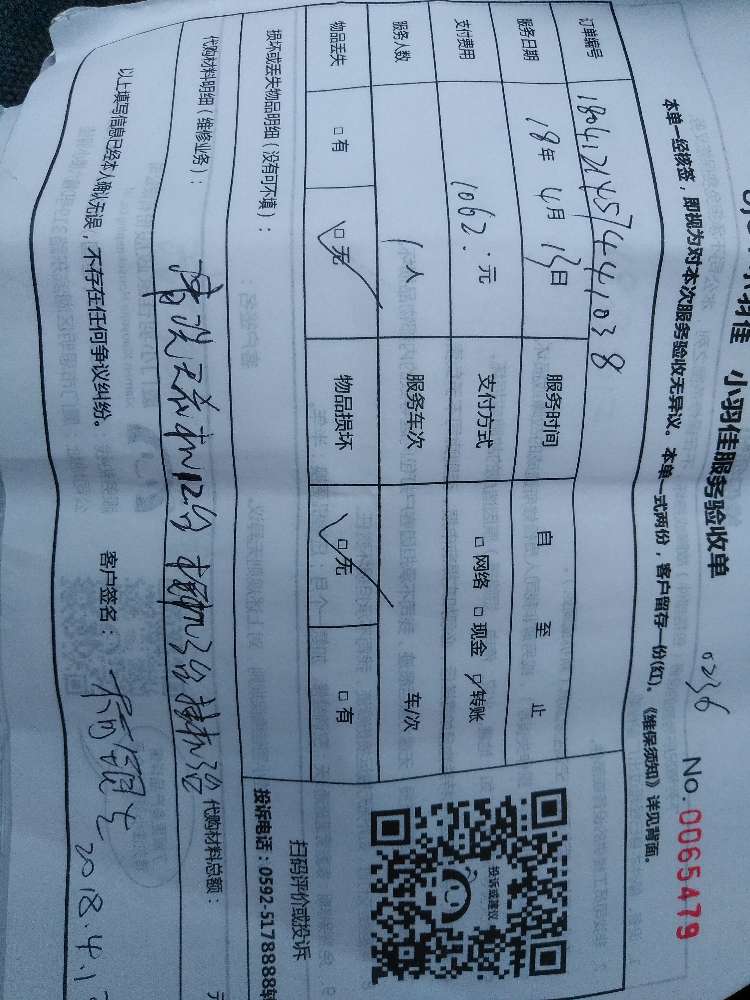 小羽佳 小羽佳服务验收单
0236 No. 0065479
本单一经核签，即视为对本次服务验收无异议。本单一式两份，客户留存一份(红)。《维保须知》详见背面。
订单编号 18041214574441038
服务日期 18年 4月 13日 服务时间 自 至 止
支付费用 1062.元 支付方式 □网络 □现金 ☑转账
服务人数 1人 服务车次 车/次
物品丢失 □有 ☑无 物品损坏 ☑无 □有
投诉或建议
扫码评价或投诉
投诉电话：0592-5178888转
损坏或丢失物品明细（没有可不填）：
代购材料明细（维修业务）： 清洗 12台 代购材料总额：
以上填写信息已经本人确认无误，不存在任何争议纠纷。 客户签名： 2018.4.1